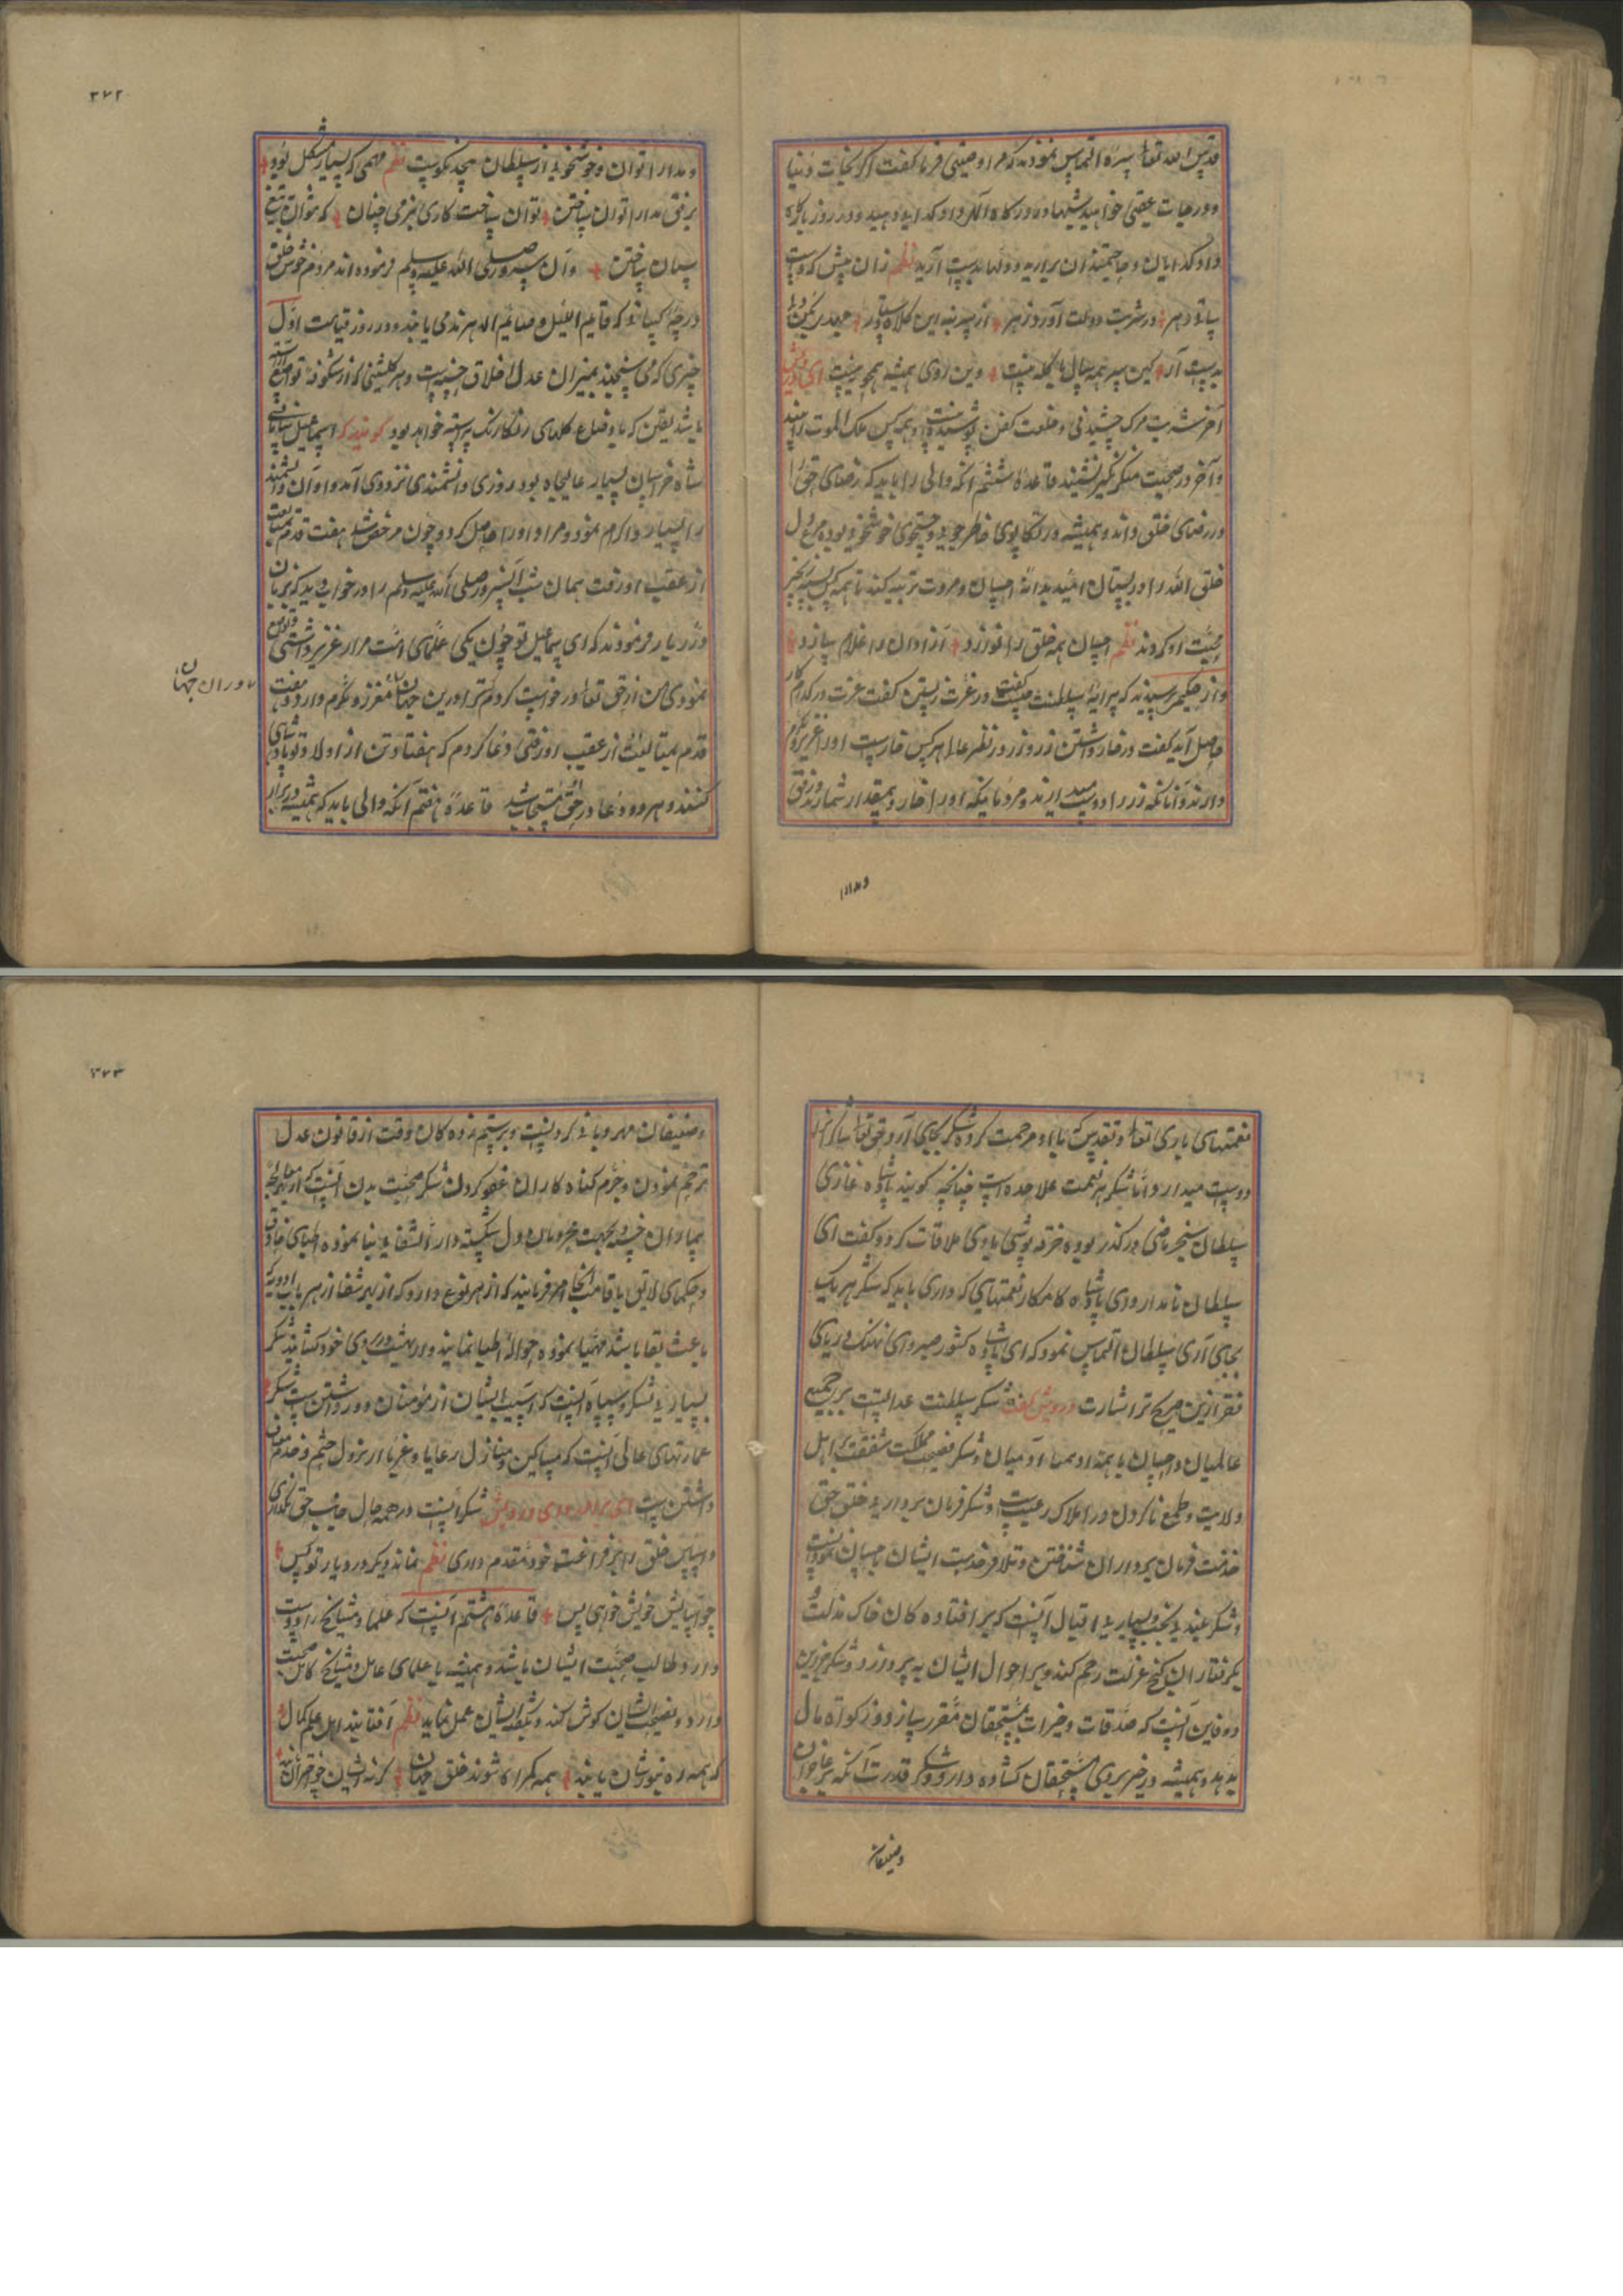 قدس الله تعالی سره التماس نمودند که مرا وصیتی فرما گفت اگر نجات دنیا
و درجات عقبی خواهید شبها در درگاه اله داد گدایی دهید و در روز بارگاه
داد گدایان و حاجتمندان برآرید و دلها بدست آرید نظم زان پیش که دست
ساقی دهر در شربت دولت آورد زهر از سر بنه این کلاه
بدست آر کین سر همه سال با کله نیست وین روی همیشه همچو مه نیست ای درویش
آخر شربت مرگ چشیدنی و خلعت کفن پوشیدنیست و همه کس ملک الموت را بیند
و آخر در صحبت منکر نکیر نشیند قاعدهٔ ششم آنکه والی را باید که رضای حق را
در رضای خلق داند و همیشه در تکاپوی خاطرجویی و جستجوی خوشخویی بوده مرغ دل
خلق الله را در بستان امید بدانهٔ احسان و مروت تربیه کند تا همه کس
محبت او کردند نظم احسان همه خلق را نوازد آزادان را غلام سازد
و از حکیم پرسیدند که پیرایهٔ سلطنت چیست گفت در عزت زیستن گفت عزت در کدام کار
حاصل آید گفت در خار داشتن زر و زر در نظر عالم هر کس خارست او را عزیز
دارند و آنانکه زر را دوست میدارند و مردمانیکه او را خار و بیمقدار شمارند و رفق
و مدارا
۳۷۲
و مدارا توان و خوشخویی از سلطان چه نیکوییست نظم مهمی که بسیار مشکل بود
برفق مدارا توان ساختن توان ساخت کاری بنرمی چنان که نتوان بتیغ
سنان ساختن و آن سرور صلی الله علیه و سلم فرموده اند مردم خوش خلق
درجهٔ کسانی که قایم اللیل و صایم الدهرند می یابند و در روز قیامت اول
چیزی که می سنجند بمیزان عدل اخلاق حسنه است و هر گلشنی که از شکوفهٔ تواضع
باشد یقین که با وضاع گلهای رنگارنگ پیراسته خواهد بود گویند که اسماعیل سامانی
شاه خراسان بسیار عالیجاه بود روزی دانشمندی نزد وی آمد و او آن دانشمند
را بسیار اکرام نمود و مراد او را حاصل کرد و چون مرخص شد هفت قدم بمتابعت
از عقب او رفت همان شب آن سرور صلی الله علیه و سلم را در خواب دید که بزبان
درر بار فرمودند که ای اسماعیل تو چون یکی علمای امت مرا عزیز داشتی و تواضع
نمودی من از حق تعالی درخواست کردم ترا درین جهان معزز و مکرم دارد و هفت
دوران جهان
قدم بمتابعت از عقب او رفتی دعا کردم که هفتاد تن از اولاد تو پادشاهی
کنند و هر دو دعا در حق مستجاب شد قاعدهٔ هفتم آنکه والی باید که همیشه در برابر
نعمتهای باری تعالی و تقدس که باو مرحمت کرده شکر بجای آرد حق تعالی شاکر را
دوست میدارد و اما شکر هر نعمت علاحده است چنانچه گویند پادشاه غازی
سلطان سنجر ماضی در گذر بود خرقه پوشی با وی ملاقات کرد و گفت ای
سلطان نامدار و ای پادشاه کامکار نعمتهایی که داری باید که شکر هر یک
بجای آری سلطان التماس نمود که ای پادشاه کشور صبر و ای نهنگ دریای
فقر ازین صریح تر اشارت درویش گفت شکر سلطنت عدالتست بر جمیع
عالمیان و احسان با همتا و همه آدمیان و شکر فسحت مملکت شفقت بر اهل
ولایت و طمع ناکردن در املاک رعیت است و شکر فرمان برداری خلق حق
خدمت فرمان برداران شناختن و تلافی خدمت ایشان باحسان نمودنست
و شکر بلندی بخت و بسیاری اقبال آنست که بر افتاده گان خاک مذلت و
گرفتاران کنج عزلت رحم کند و بر احوال ایشان بپردازد و شکر خزاین
و دفاین آنست که صدقات و خیرات بمستحقان مقرر سازد و زکوة مال
بدهد و همیشه در خیر بروی مستحقان گشاده دارد و شکر قدرت آنکه بر عاجزان
و ضعیفان
۳۷۳
و ضعیفان مهربانی کردنیست و بر ستم زده گان وقت از قانون عدل
ترحم نمودن و جرم گناه کاران عفو کردن شکر صحت بدن آنست که از بهر معالجه
بیماران خسته و بجهت مجروحان دل شکسته دارالشفایی بنا نموده اطبای حاذق
و حکمای لایق باقامت آنجا امر فرمایند که از هر نوع دارو که از بهر شفا از هر باب ادویه که
باعث بقا باشد مهیا نموده حوالهٔ اطبا نمایند و در بهشت بروی خود گشایند شکر
بسیاری لشکر و سپاه آنست که آسیب ایشان از مؤمنان دور داشتن است شکر
عمارتهای عالی آنست که مساکین و منازل رعایا و غربا از نزول حشم و خدم معاف
داشتن است ای برادر و ای درویش شکر آنست در همه حال جانب حق نگهداری
و آسایش خلق را بر فراغت خود مقدم داری نظم نماند دیگر در دیار تو کس
چو آسایش خویش خواهی و بس قاعدهٔ هشتم آنست که علما و مشایخ را دوست
دارد و طالب صحبت ایشان باشد و همیشه با علمای عامل و مشایخ کامل صحبت
دارد و نصیحت ایشان گوش کند و بگفتهٔ ایشان عمل نماید نظم آفتابند اهل علم و کمال
که همه ره بنورشان یابند همه گمراه شوند خلق جهان گر نه ایشان